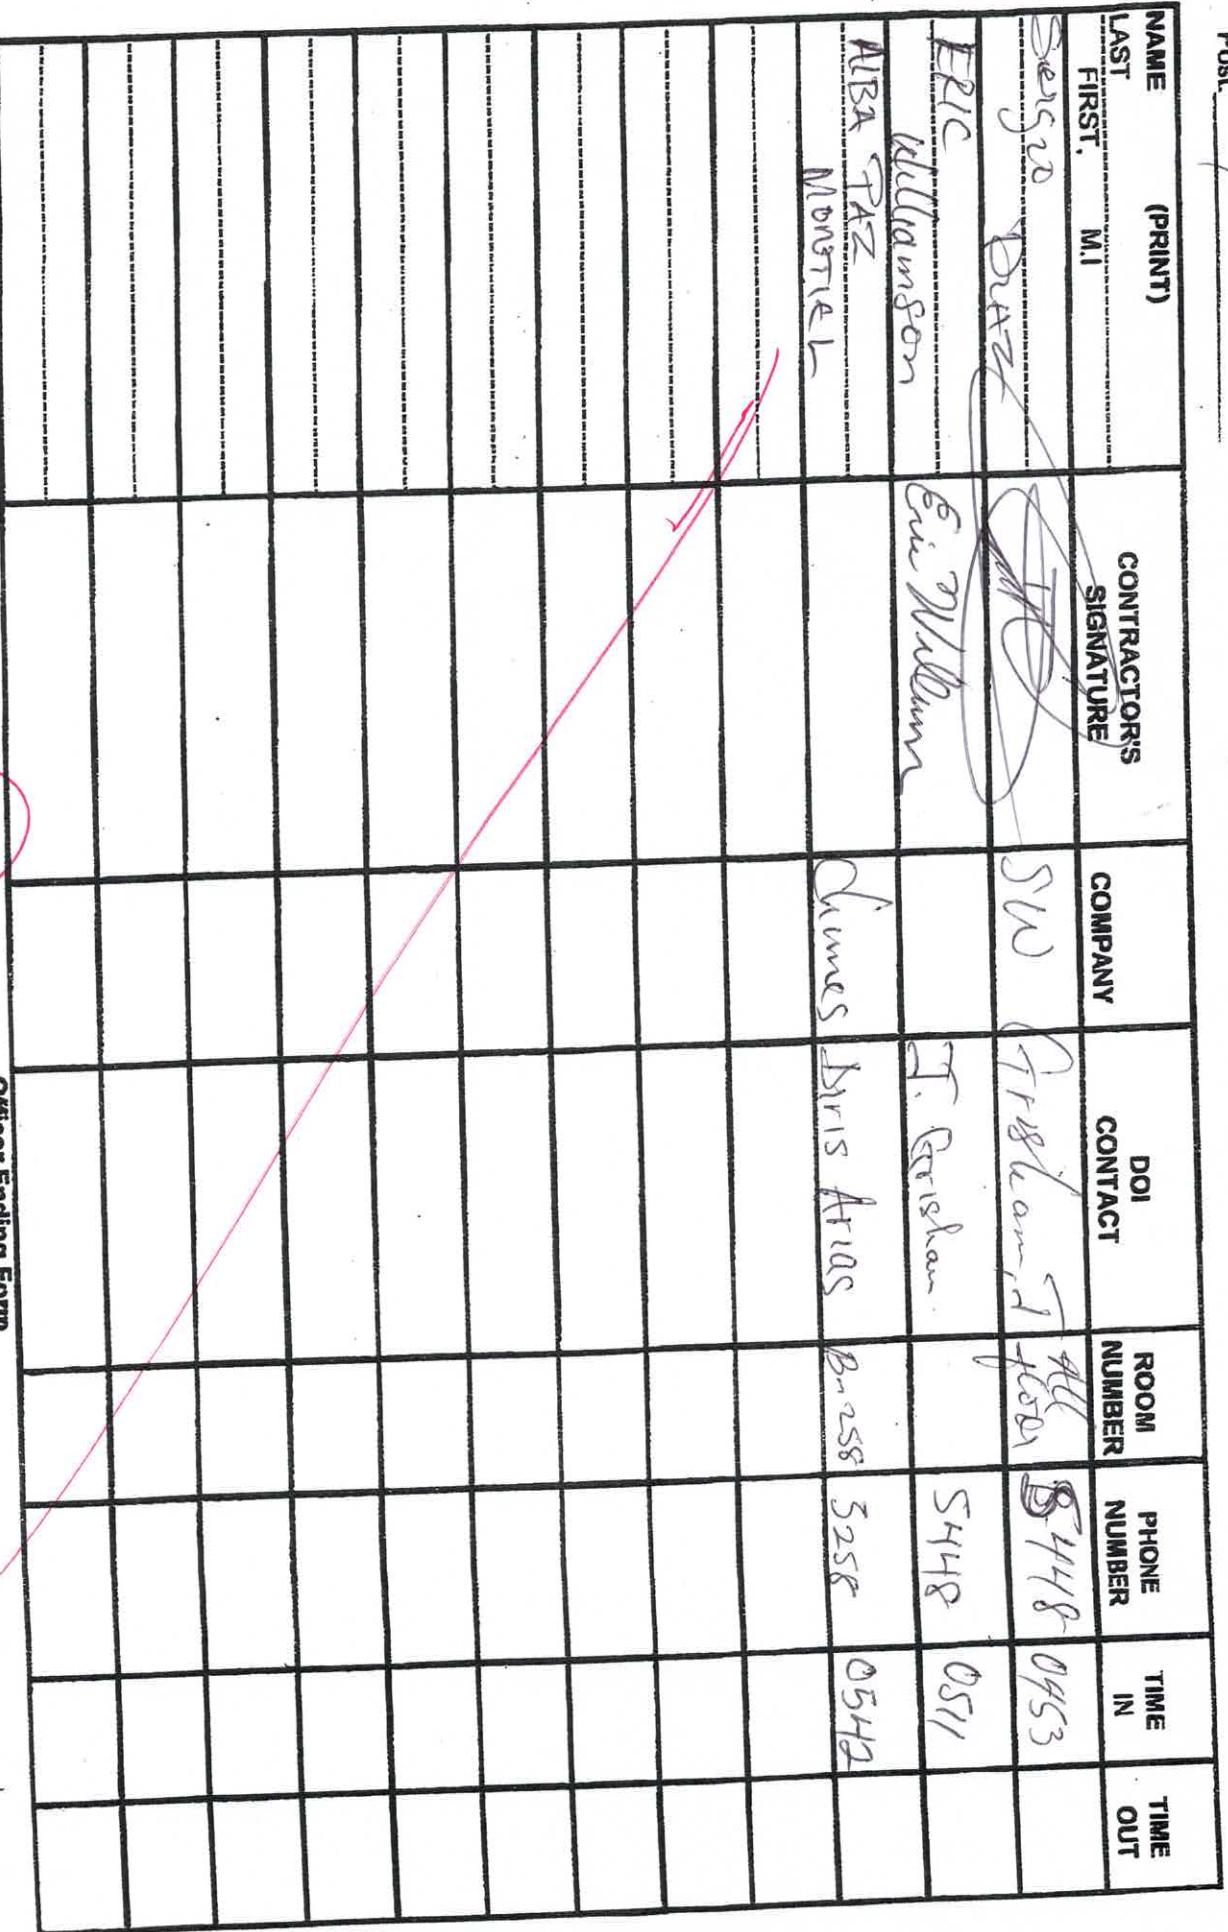 POST
NAME (PRINT)
LAST
FIRST, M.I
CONTRACTOR'S
SIGNATURE
COMPANY
DOI
CONTACT
ROOM
NUMBER
PHONE
NUMBER
TIME
IN
TIME
OUT
Sergio
DIAZ
SW
Grisham, J
All
floor
5448
0453
ERIC
Williamson
J. Grisham.
5448
0511
ALBA PAZ
MONTIEL
Chimes
Diris Arias
Bm258
3258
0542
Officer Ending Form